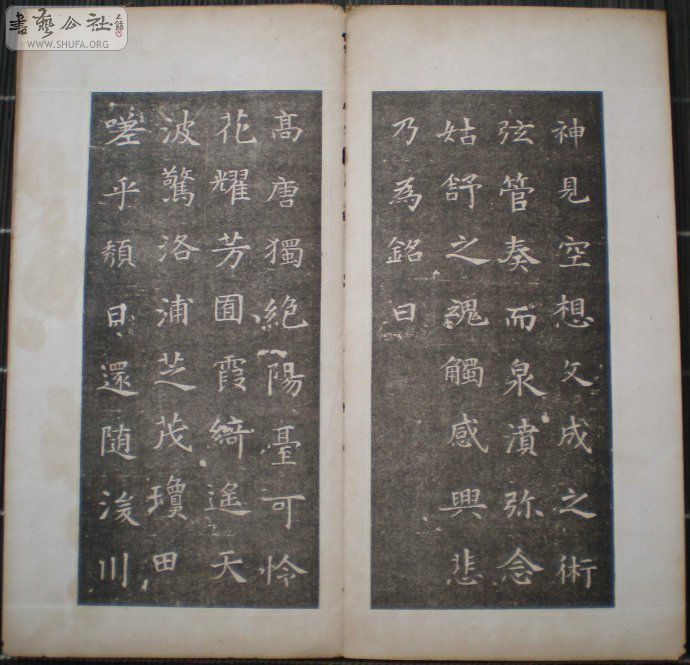 書藝公社
WWW.SHUFA.ORG
神見空想文成之術
弦管奏而泉濆弥念
姑舒之魂觸感興悲
乃為銘曰
髙唐獨絶陽臺可怜
花耀芳囿霞綺遙天
波驚洛浦芝茂瓊田
嗟乎頺日還随浚川